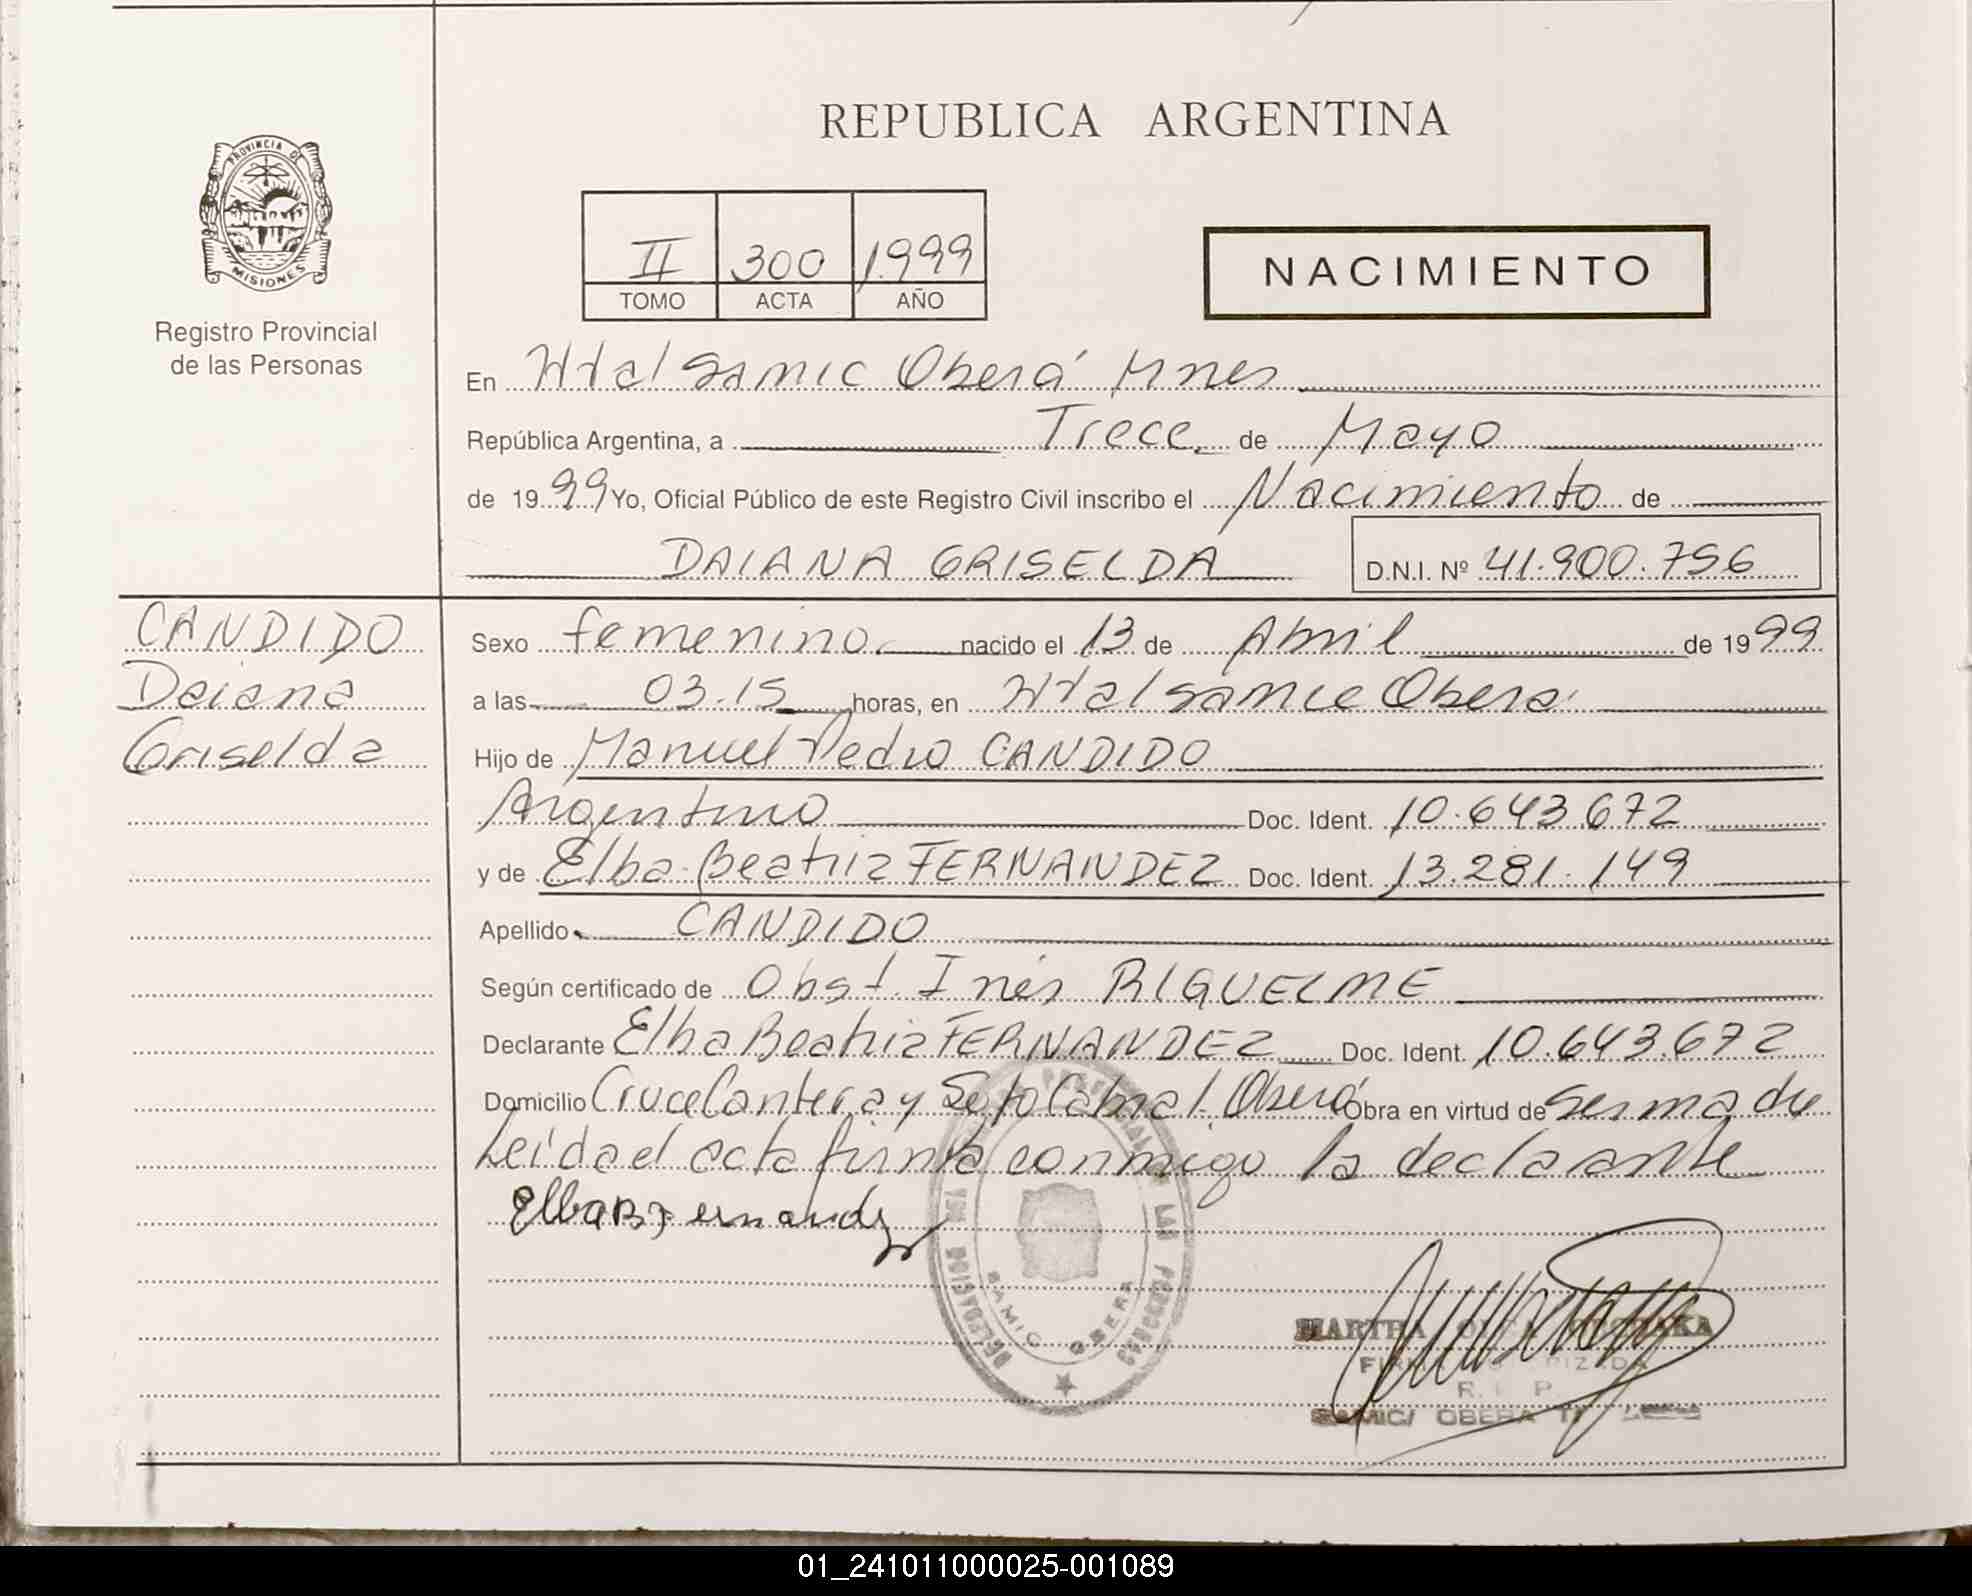 REPUBLICA ARGENTINA
PROVINCIA DE
MISIONES
Registro Provincial
de las Personas
II 300 1999
TOMO ACTA AÑO
NACIMIENTO
En Htal Samic Oberá Mnes
República Argentina, a Trece de Mayo
de 1999 Yo, Oficial Público de este Registro Civil inscribo el Nacimiento de
DAIANA GRISELDA D.N.I. Nº 41.900.756
CANDIDO
Daiana
Griselda
Sexo femenino nacido el 13 de Abril de 1999
a las 03.15 horas, en Htal Samic Oberá
Hijo de Manuel Pedro CANDIDO
Argentino Doc. Ident. 10.643.672
y de Elba Beatriz FERNANDEZ Doc. Ident. 13.281.149
Apellido CANDIDO
Según certificado de Obst. Inés RIQUELME
Declarante Elba Beatriz FERNANDEZ Doc. Ident. 10.643.672
Domicilio Cruce Cantera y Sgto Cabral. Oberá Obra en virtud de ser madre
Leída el acta firma conmigo la declarante
Elba B. Fernandez
DELEGACION
LAS PERSONAS
SAMIC OBERA
MARTHA
FIRMA AUTORIZADA
R. P.
SAMIC/ OBERA
01_241011000025-001089